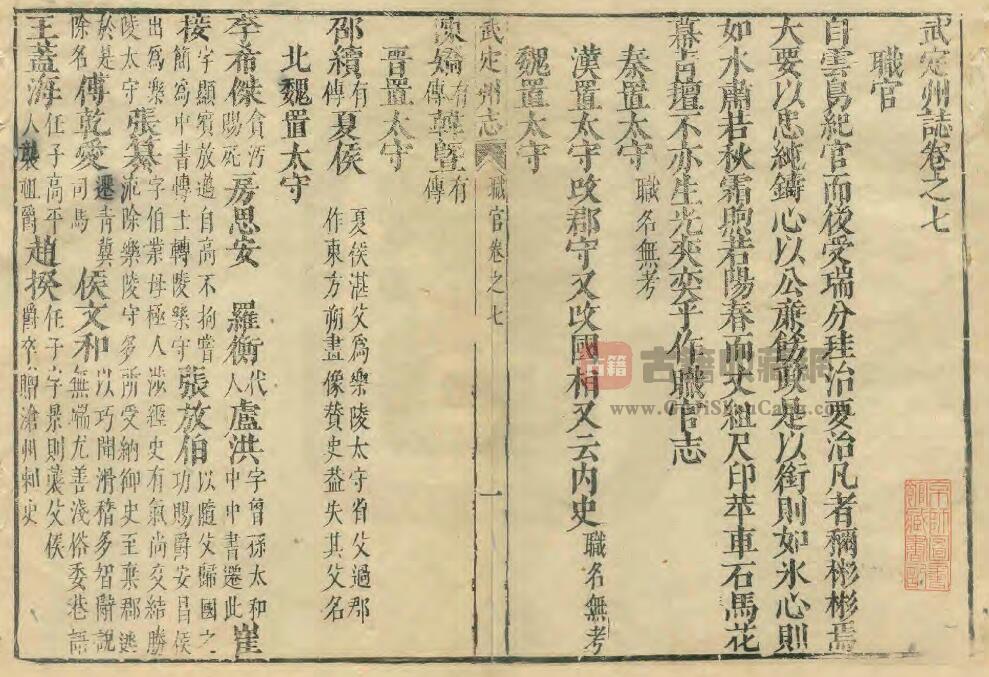 武定州誌卷之七
職官
白雲鳥紀官而後受瑞分珪治要治凡者稱彬彬焉
大要以忠純鑄心以公廉飭政是以銜則如氷心則
如水肅若秋霜煦若陽春而丈組尺印苹車石馬花
幕百壇不亦生光奕奕乎作職官志
秦置太守職名無考
漢置太守攺郡守又攺國相又云内史職名無考
魏置太守
武定州志 職官卷之七 一
有傳韓曁有傳
晋置太守
邵續有傳夏侯夏侯湛父爲樂陵太守省父過郡作東方朔畫像賛史益失其父名
北魏置太守
李希傑貪汚賜死房思安 羅衡代人盧洪字曾孫太和中中書遷此崔
接字顯賓放邁自高不拘嘗簡爲中書轉士轉陵樂守張放伯以隨父歸國之功賜爵安昌侯
出爲樂字伯業母極人涉經史有氣尚交結勝陵太守張纂㳂除樂陵守多所受納御史至棄郡逃
於是除名傅乾愛遷青冀司馬 侯文和以巧聞滑稽多智辭說無端尤善淺俗委巷語
王蓋海任子高平人襲祖爵趙揆任子字景則襲父侯爵卒贈滄州刺史
古籍
古籍典藏網
www.GuJiDianCang.com